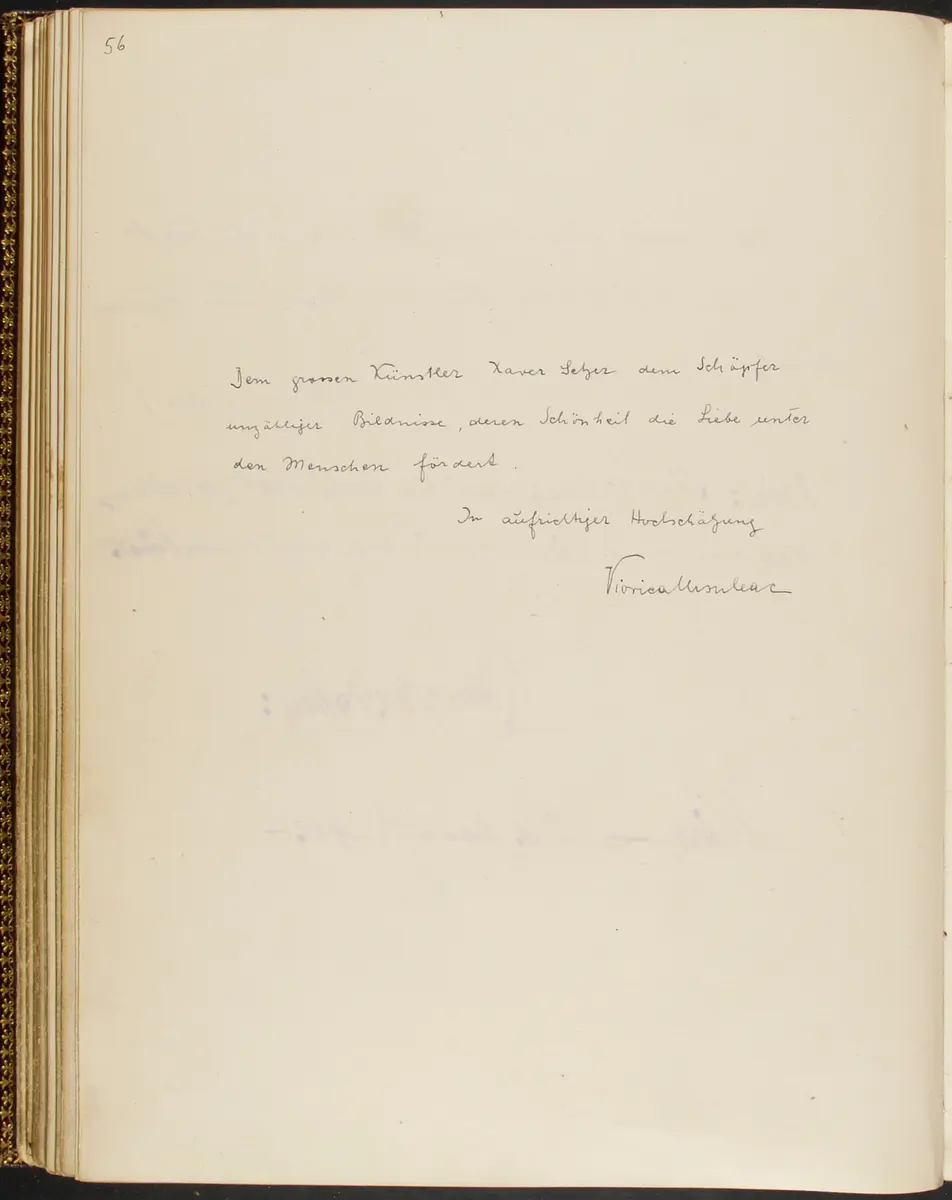 56
Dem grossen Künstler Xaver Setzer dem Schöpfer
unzälliger Bildnisse, deren Schönheit die Liebe unter
den Menschen fördert.
In aufrichtiger Hochschätzung
Viorica Ursuleac